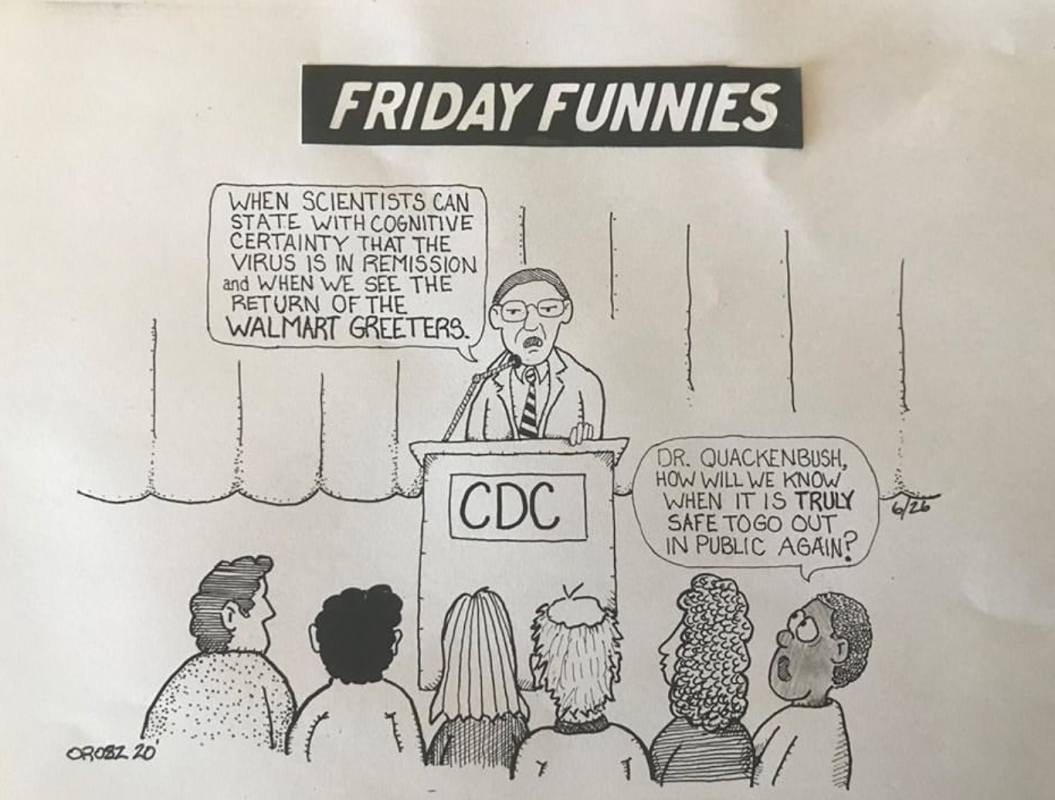 FRIDAY FUNNIES
WHEN SCIENTISTS CAN
STATE WITH COGNITIVE
CERTAINTY THAT THE
VIRUS IS IN REMISSION
and WHEN WE SEE THE
RETURN OF THE
WALMART GREETERS.
CDC
DR. QUACKENBUSH,
HOW WILL WE KNOW
WHEN IT IS TRULY
SAFE TO GO OUT
IN PUBLIC AGAIN?
6/26
OROSZ 20